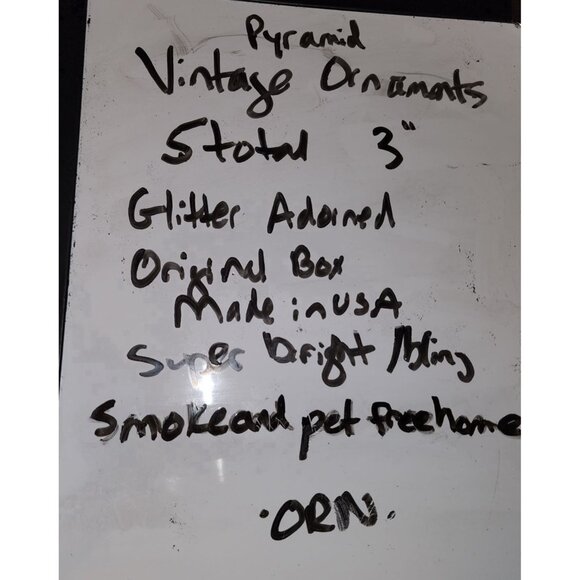 Pyramid
Vintage Ornaments
5 total 3"
Glitter Adorned
Original Box
Made in USA
Super bright /bling
Smoke and pet free home
·ORN.